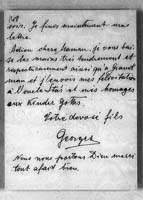 soir. Je finis maintenant ma
lettre.
Adieu chère Maman, je vous bai-
se les mains très tendrement et
respectueusement ainsi qu'à Grand
man et j'envoie mes félicitations
à l'oncle et mes hommages
aux Kinder Gottes.
Votre dévoué fils
Georges
Nous nous portons Dieu merci
tout à fait bien.